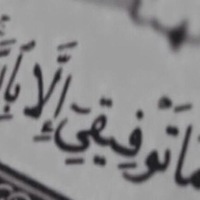 مَا تَوْفِيقِيٓ إِلَّا بِال